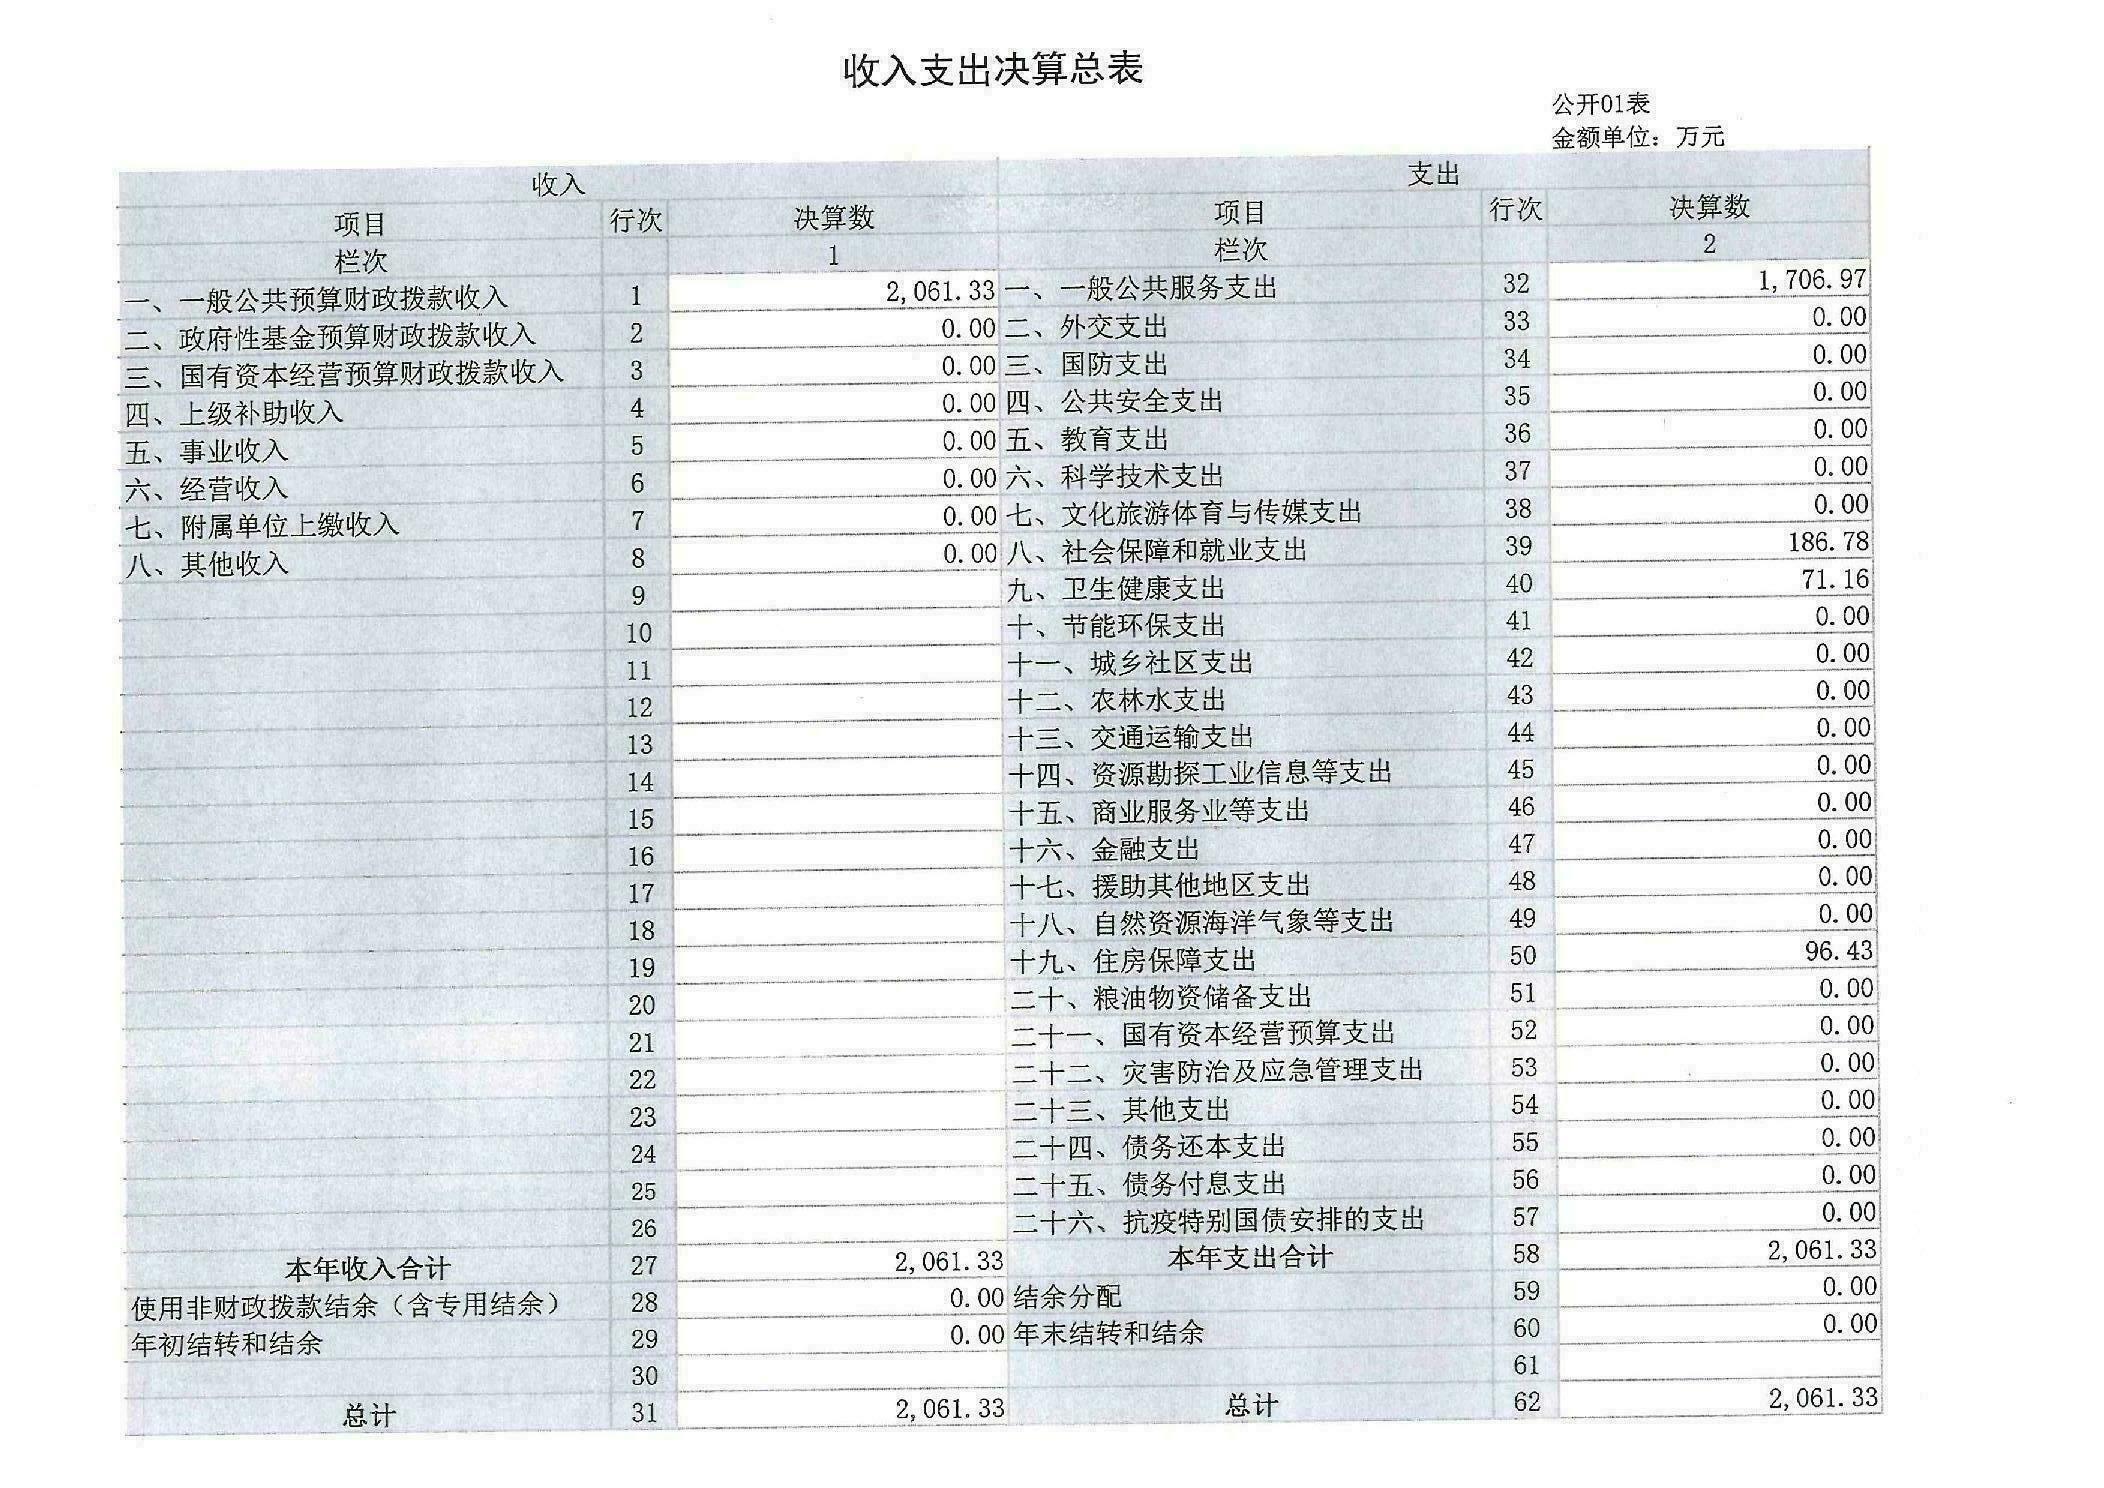 收入支出决算总表
公开01表
金额单位：万元
收入 支出
项目 行次 决算数 项目 行次 决算数
栏次 1 栏次 2
一、一般公共预算财政拨款收入 1 2,061.33 一、一般公共服务支出 32 1,706.97
二、政府性基金预算财政拨款收入 2 0.00 二、外交支出 33 0.00
三、国有资本经营预算财政拨款收入 3 0.00 三、国防支出 34 0.00
四、上级补助收入 4 0.00 四、公共安全支出 35 0.00
五、事业收入 5 0.00 五、教育支出 36 0.00
六、经营收入 6 0.00 六、科学技术支出 37 0.00
七、附属单位上缴收入 7 0.00 七、文化旅游体育与传媒支出 38 0.00
八、其他收入 8 0.00 八、社会保障和就业支出 39 186.78
9 九、卫生健康支出 40 71.16
10 十、节能环保支出 41 0.00
11 十一、城乡社区支出 42 0.00
12 十二、农林水支出 43 0.00
13 十三、交通运输支出 44 0.00
14 十四、资源勘探工业信息等支出 45 0.00
15 十五、商业服务业等支出 46 0.00
16 十六、金融支出 47 0.00
17 十七、援助其他地区支出 48 0.00
18 十八、自然资源海洋气象等支出 49 0.00
19 十九、住房保障支出 50 96.43
20 二十、粮油物资储备支出 51 0.00
21 二十一、国有资本经营预算支出 52 0.00
22 二十二、灾害防治及应急管理支出 53 0.00
23 二十三、其他支出 54 0.00
24 二十四、债务还本支出 55 0.00
25 二十五、债务付息支出 56 0.00
26 二十六、抗疫特别国债安排的支出 57 0.00
本年收入合计 27 2,061.33 本年支出合计 58 2,061.33
使用非财政拨款结余（含专用结余） 28 0.00 结余分配 59 0.00
年初结转和结余 29 0.00 年末结转和结余 60 0.00
30 61
总计 31 2,061.33 总计 62 2,061.33